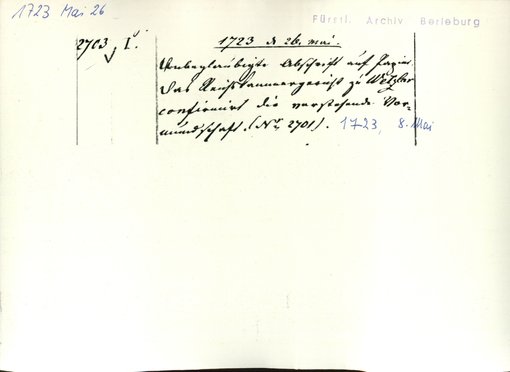 1723 Mai 26
Fürstl. Archiv Berleburg
2703, I.
1723 d 26. mai.
Unbeglaubigte Abschrift auf Papier.
Das Reichskammergericht zu Wetzlar
confirmirt die vorstehende Vor-
mundschaft. (Nr. 2701). 1723, 8. Mai